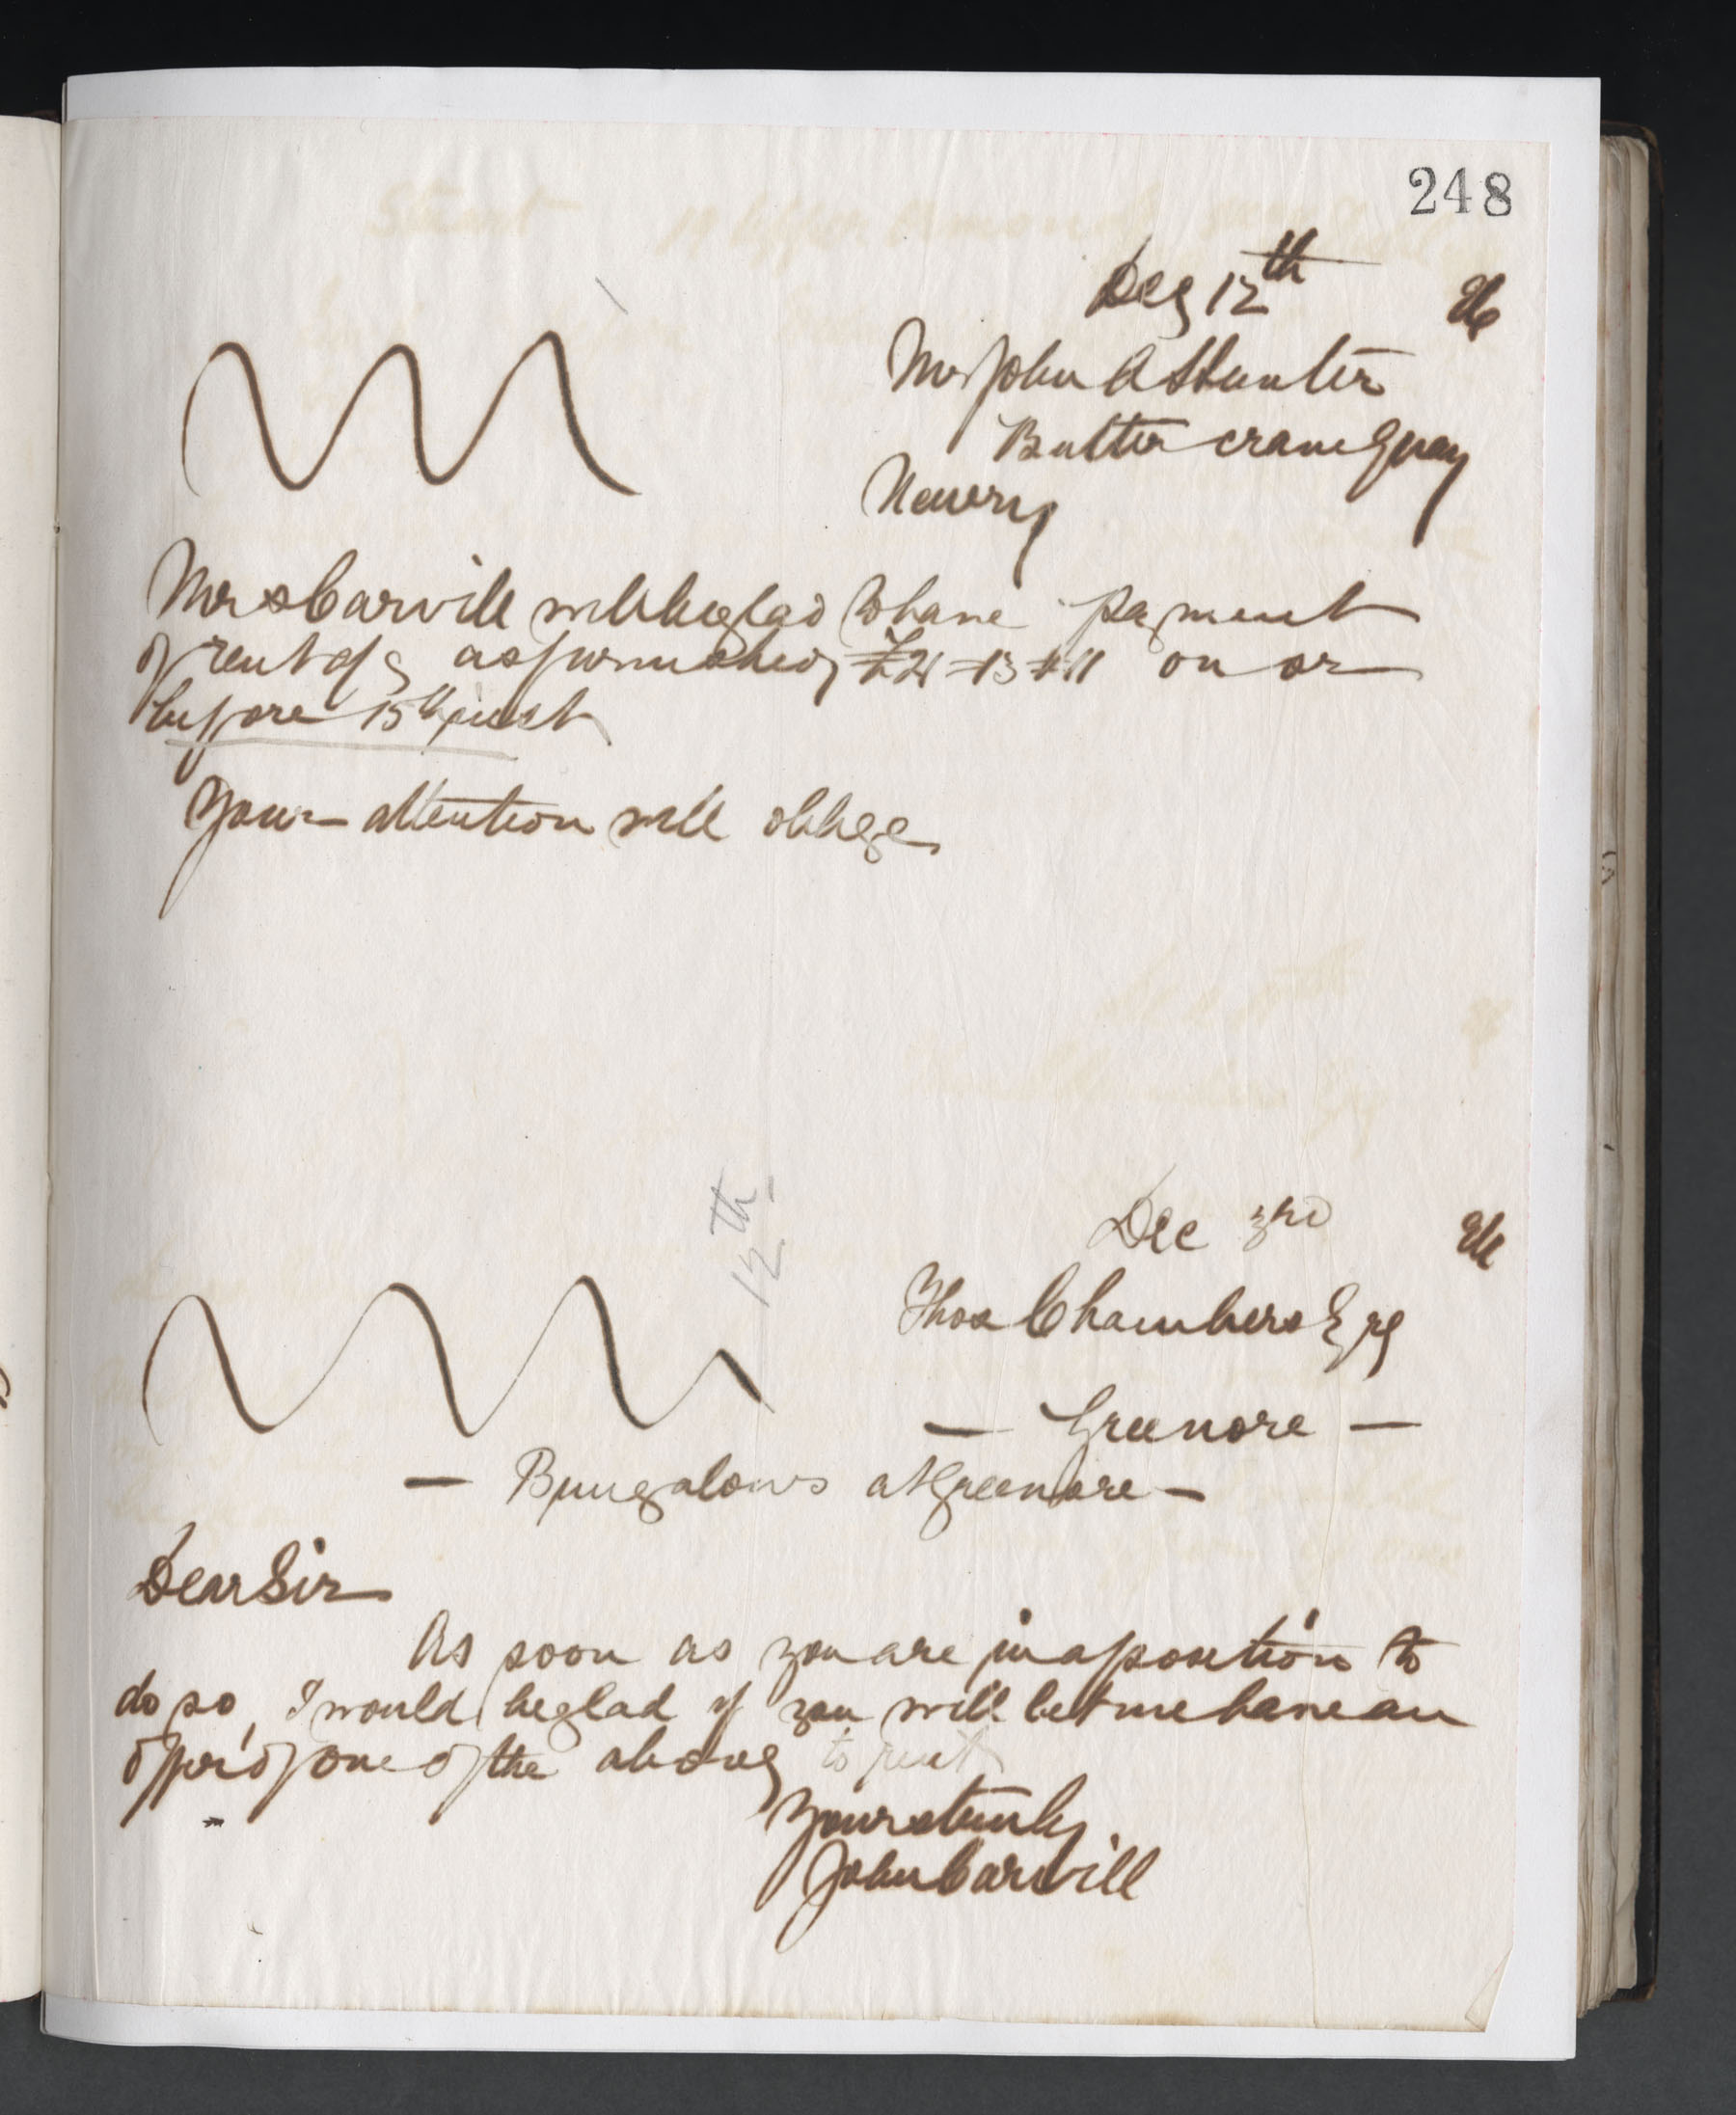 248
Dec 12th
Mr John A Hunter
Butter crane Quay
Newry
Mrs Carvill will be glad to have payment
of rent of a/c as furnished, £21-13-11 on or
before 15th inst
Your attention will oblige
12th
Dec 3rd
Thos Chambers Esq
— Greenore —
— Bungalows at Greenore —
Dear Sir
As soon as you are in a position to
do so, I would be glad if you will let me have an
offer of one of the above, to rent
Yours truly
John Carvill